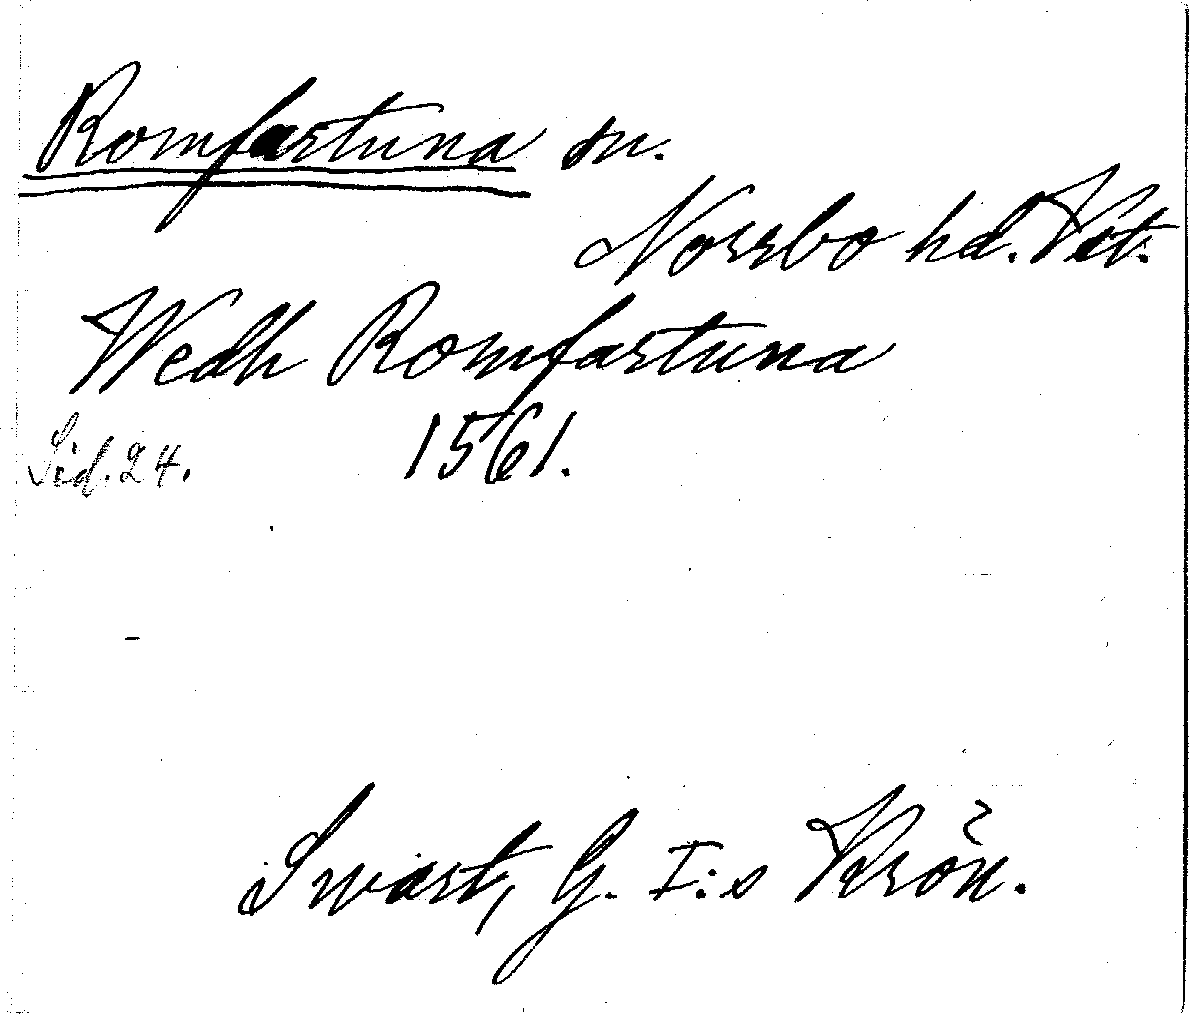 Romfartuna sn.
Norrbo hd. Vstm.
Wedh Romfartuna
Sid. 24. 1561.
Swart, G. I:s Krön.